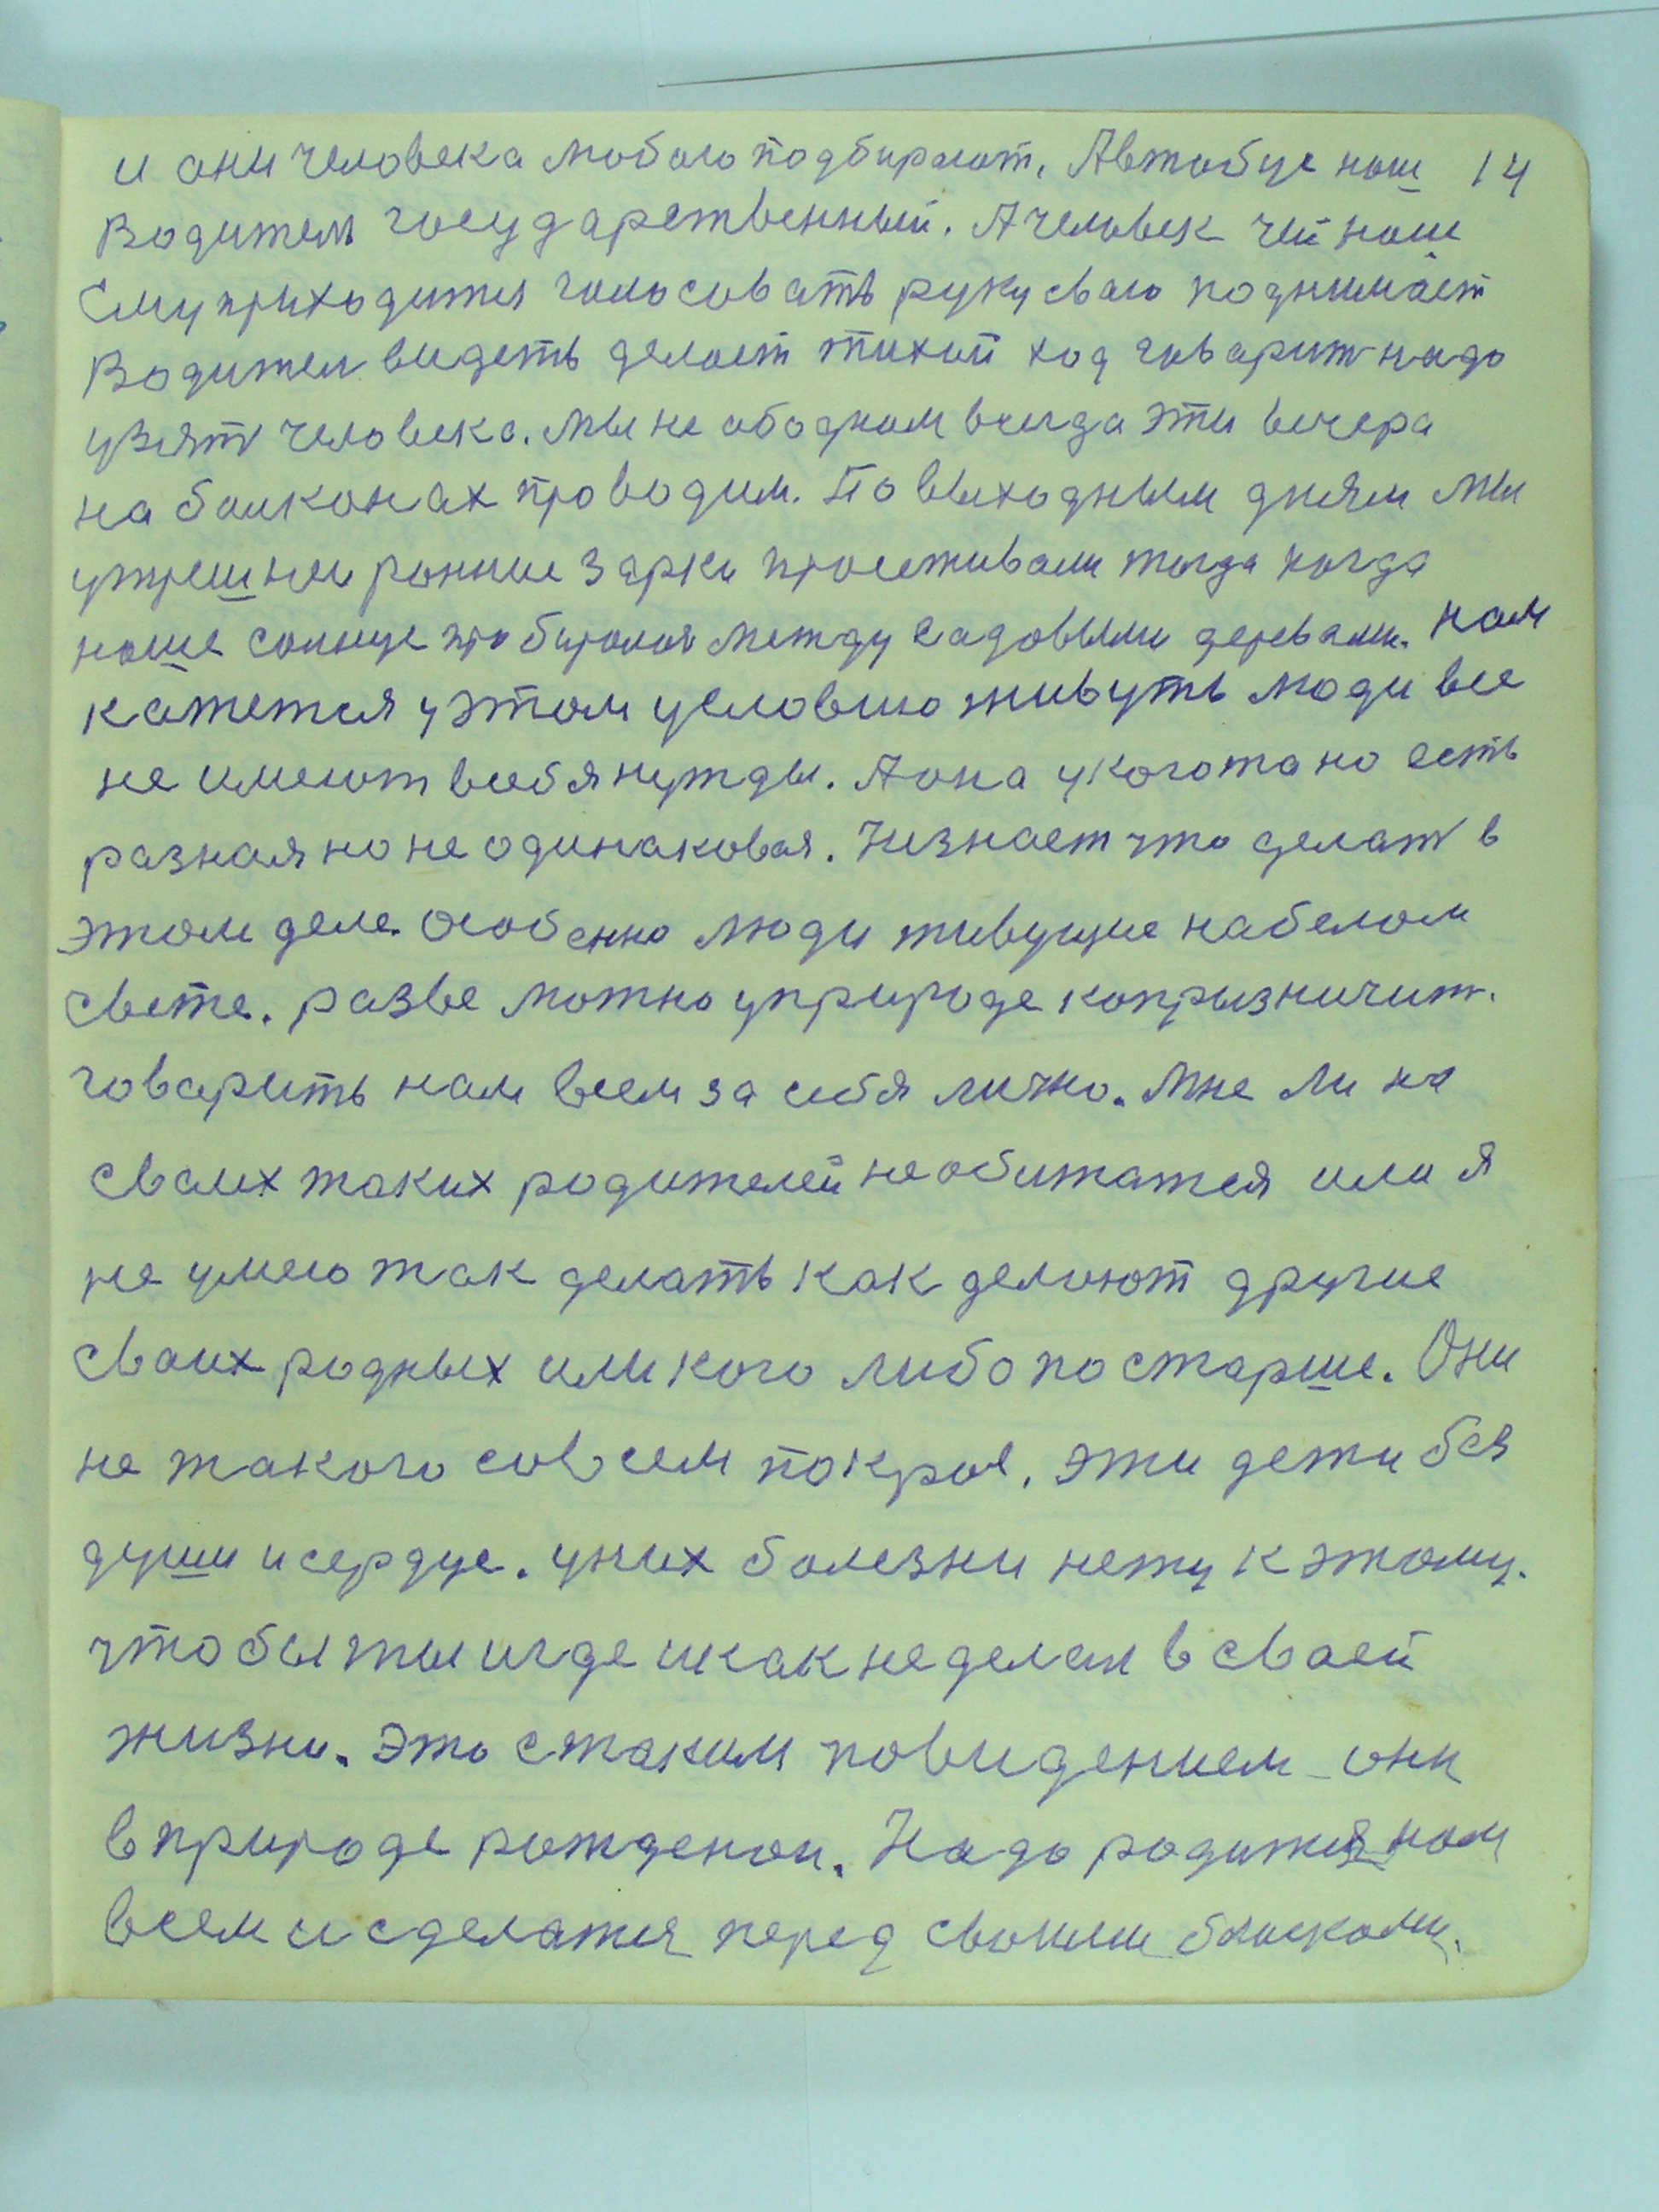 и они человека любого подбирают. Автобус наш 14
водитель государственный. А человек чей наш
Ему приходится голосовать руку сваю поднимает
Водител видеть делает тихий ход гаварит надо
узят человека. Мы не ободном всегда эти вечера
на балконах проводим. По выходным дням мы
утрешнии ранние зарки просиживали тогда когда
наше солнце пробиралося между садовыми деревами. Нам
кажется у этом условию живуть люди все
не имеют всебя нужды. А она укогото но есть
разная но не одинаковая. Чизнает что делат в
этом деле. Особенно люди живущие набелом
свете. разве можно уприроде копрызничит.
говарить нам всем за себя лично. Мне ли на
сваих таких родителей не обижатся или я
не умею так делать как делают другие
сваих родных или кого либо по старше. Они
не такого совсем покроя. эти дети без
души исердце. уних болезни нету к этому.
чтобы ты игде икак неделал в сваей
жизни. Это стаким повидением они
вприроде рожденои. Надо родится нам
всем и сделатся перед своими блиским.